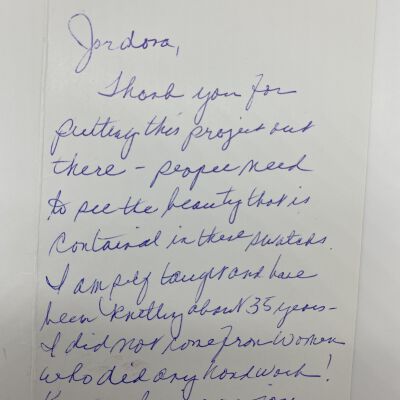 Jordora,
Thank you for
putting this project out
there - people need
to see the beauty that is
contained in these swatches.
I am self taught and have
been knitting about 35 years -
I did not come from women
who did any handwork!